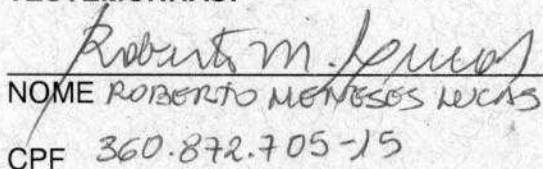 TESTEMUNHAS:
Roberto M. Lucas
NOME ROBERTO MENESES LUCAS
CPF 360.872.705-15